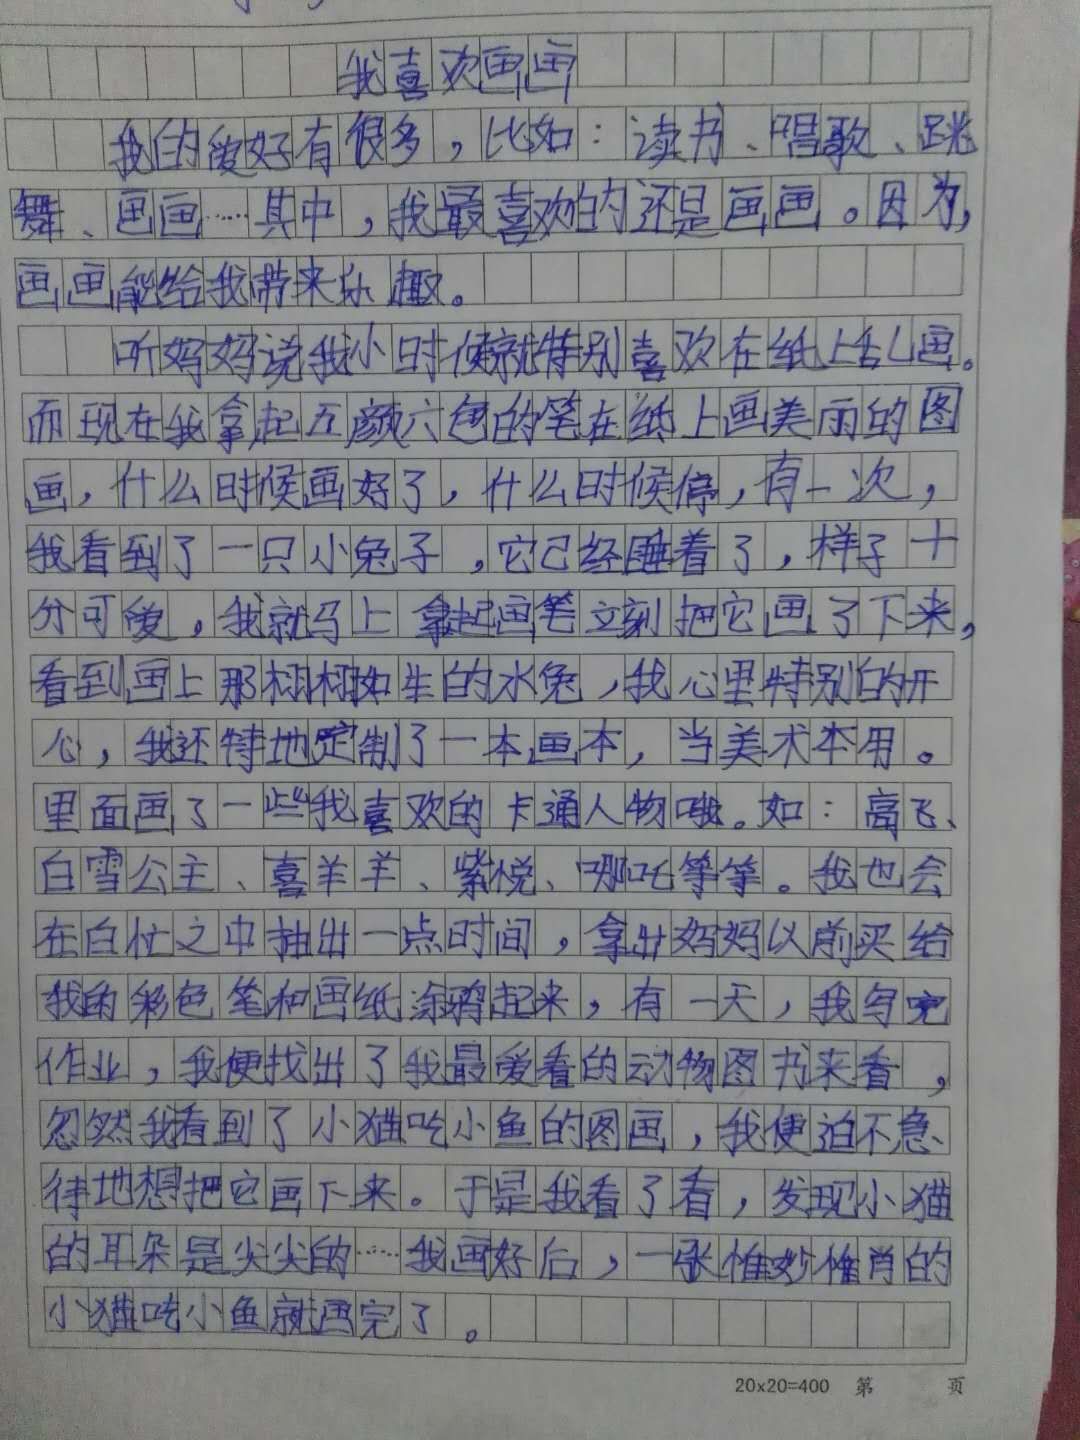 我喜欢画画
我的爱好有很多，比如：读书、唱歌、跳
舞、画画……其中，我最喜欢的还是画画。因为，
画画能给我带来乐趣。
听妈妈说我小时候就特别喜欢在纸上乱画。
而现在我拿起五颜六色的笔在纸上画美丽的图
画，什么时候画好了，什么时候停，有一次，
我看到了一只小兔子，它已经睡着了，样子十
分可爱，我就马上拿起画笔立刻把它画了下来，
看到画上那栩栩如生的小兔，我心里特别的开
心，我还特地定制了一本画本，当美术本用。
里面画了一些我喜欢的卡通人物哦。如：高飞、
白雪公主、喜羊羊、紫悦、哪吒等等。我也会
在白忙之中抽出一点时间，拿出妈妈以前买给
我的彩色笔和画纸涂鸦起来，有一天，我写完
作业，我便找出了我最爱看的动物图书来看，
忽然我看到了小猫吃小鱼的图画，我便迫不急
待地想把它画下来。于是我看了看，发现小猫
的耳朵是尖尖的……我画好后，一张惟妙惟肖的
小猫吃小鱼就画完了。
20×20=400 第 页